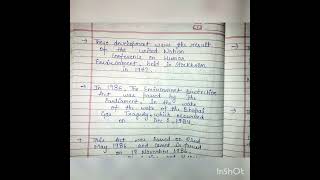 → These development were the result
of the United Nation
Conference on Human
Environment, held in Stockholm
in 1972.
→ In 1986, The Environment Protection
Act was passed by the
Parliament, In the wake
of the wake of the Bhopal
Gas Tragedy, which occurred
on Dec 3, 1984.
→ This Act was passed on 23rd
May 1986 and came in forced
on 19 November 1986.
InShOt